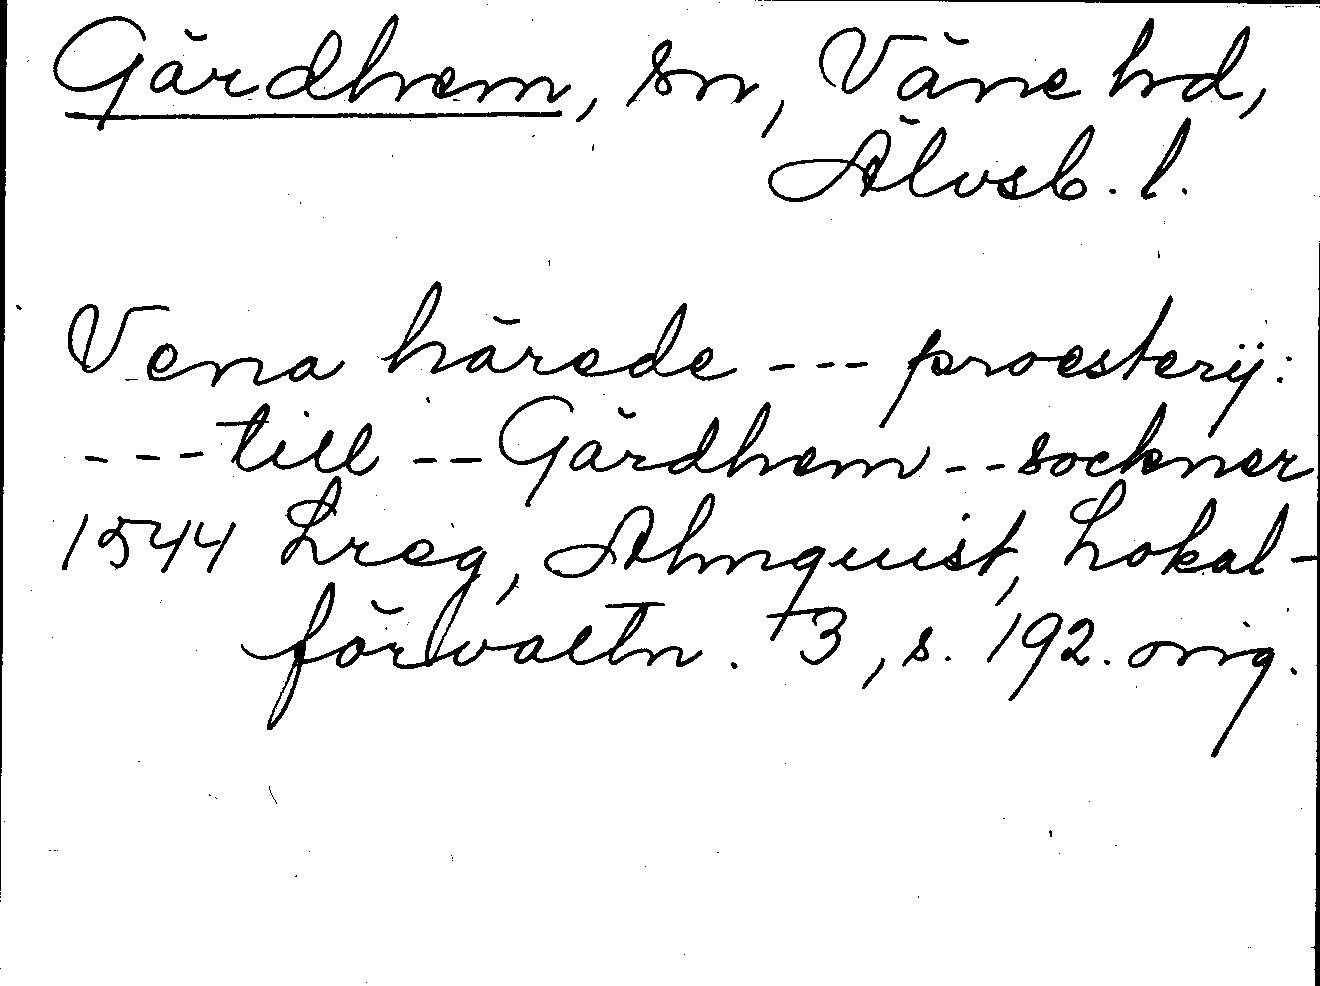 Gärdhem, sn, Väne hd,
Älvsb. l.
Vena härede --- proesterij:
--- till -- Gärdhem -- sockner
1544 Lreg, Almquist, Lokal-
förvaltn. 3, s. 192. orig.